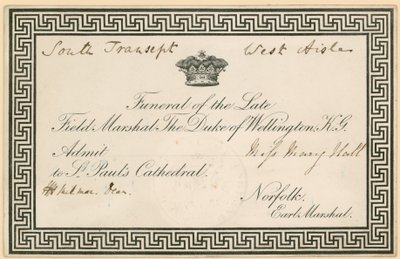 South Transept West Aisle
Funeral of the Late
Field Marshal, The Duke of Wellington, K.G.
Admit Miss Mary Hall
to St. Paul's Cathedral.
H H Milman. Dean.
Norfolk,
Earl Marshal.